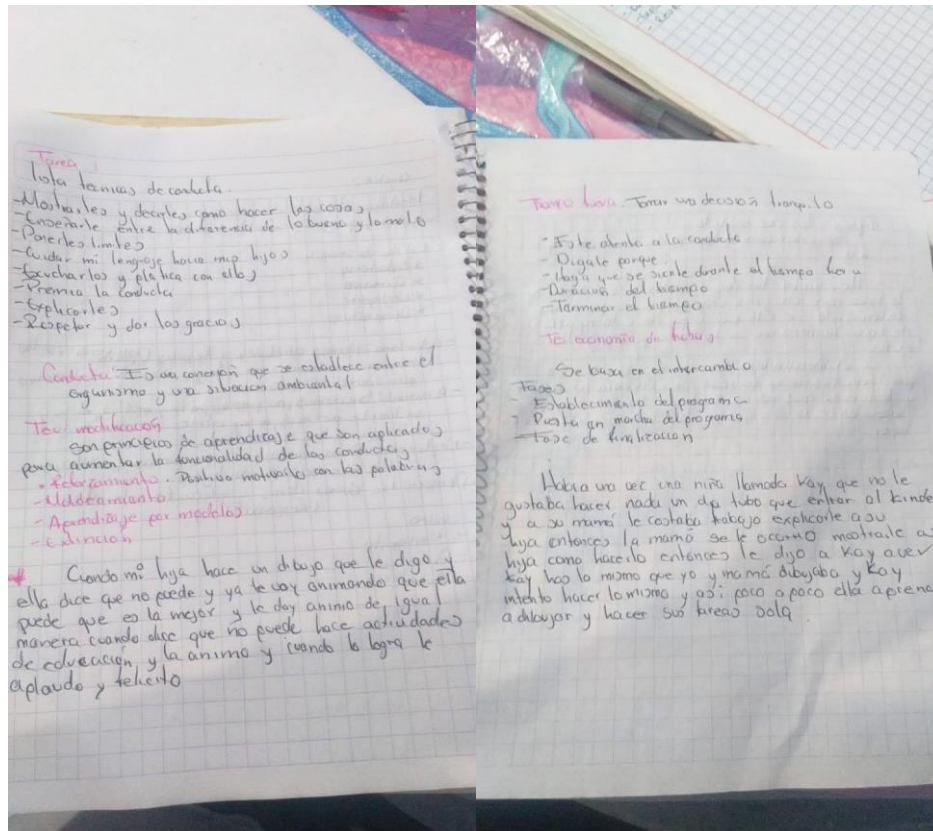 Tarea
lista tecnicas de conducta.
-Mostrarles y decirles como hacer las cosas
-Enseñarle entre la diferencia de lo bueno y lo malo
-Ponerles limites
-Cuidar mi lenguaje hacia mis hijos
-Escucharlos y platica con ellos
-Premia la conducta
-Explicarles
-Respetar y dar las gracias
Conducta Es una conexión que se establece entre el
organismo y una situacion ambiental
Tec modificacion
son principios de aprendizaje que son aplicados
para aumentar la funcionalidad de las conductas
. Reforzamiento. Positivo motivarlo con las palabras
-Moldeamiento
-Aprendizaje por modelos
-Extincion
Cuando mi hija hace un dibujo que le digo y
ella dice que no puede y ya le voy animando que ella
puede que es la mejor y le doy animo de igual
manera cuando dice que no puede hace actividades
de educación, y la animo y cuando lo logra le
aplaudo y felicito
Tiempo fuera Tomar una decisión tranquilo
-Este atento a la conducta
-Digale porque
-Haga que se siente durante el tiempo
-Duracion del tiempo
-Terminar el tiempo
economia de fichas
Se basa en el intercambio
Fases
- Establecimiento del programa
- Puesta en marcha del programa
- Fase de finalizacion
Habia una vez una niña llamada Kay que no le
gustaba hacer nada un dia tubo que entrar al kinde
y a su mamá le costaba trabajo explicarle a su
hija entonces la mamá se le ocurrio mostraile a
hija como hacerlo entonces le dijo a Kay aver
Kay has lo mismo que yo y mamá dibujaba y Kay
intento hacer lo mismo y asi poco a poco ella aprend
a dibujar y hacer sus tareas sola